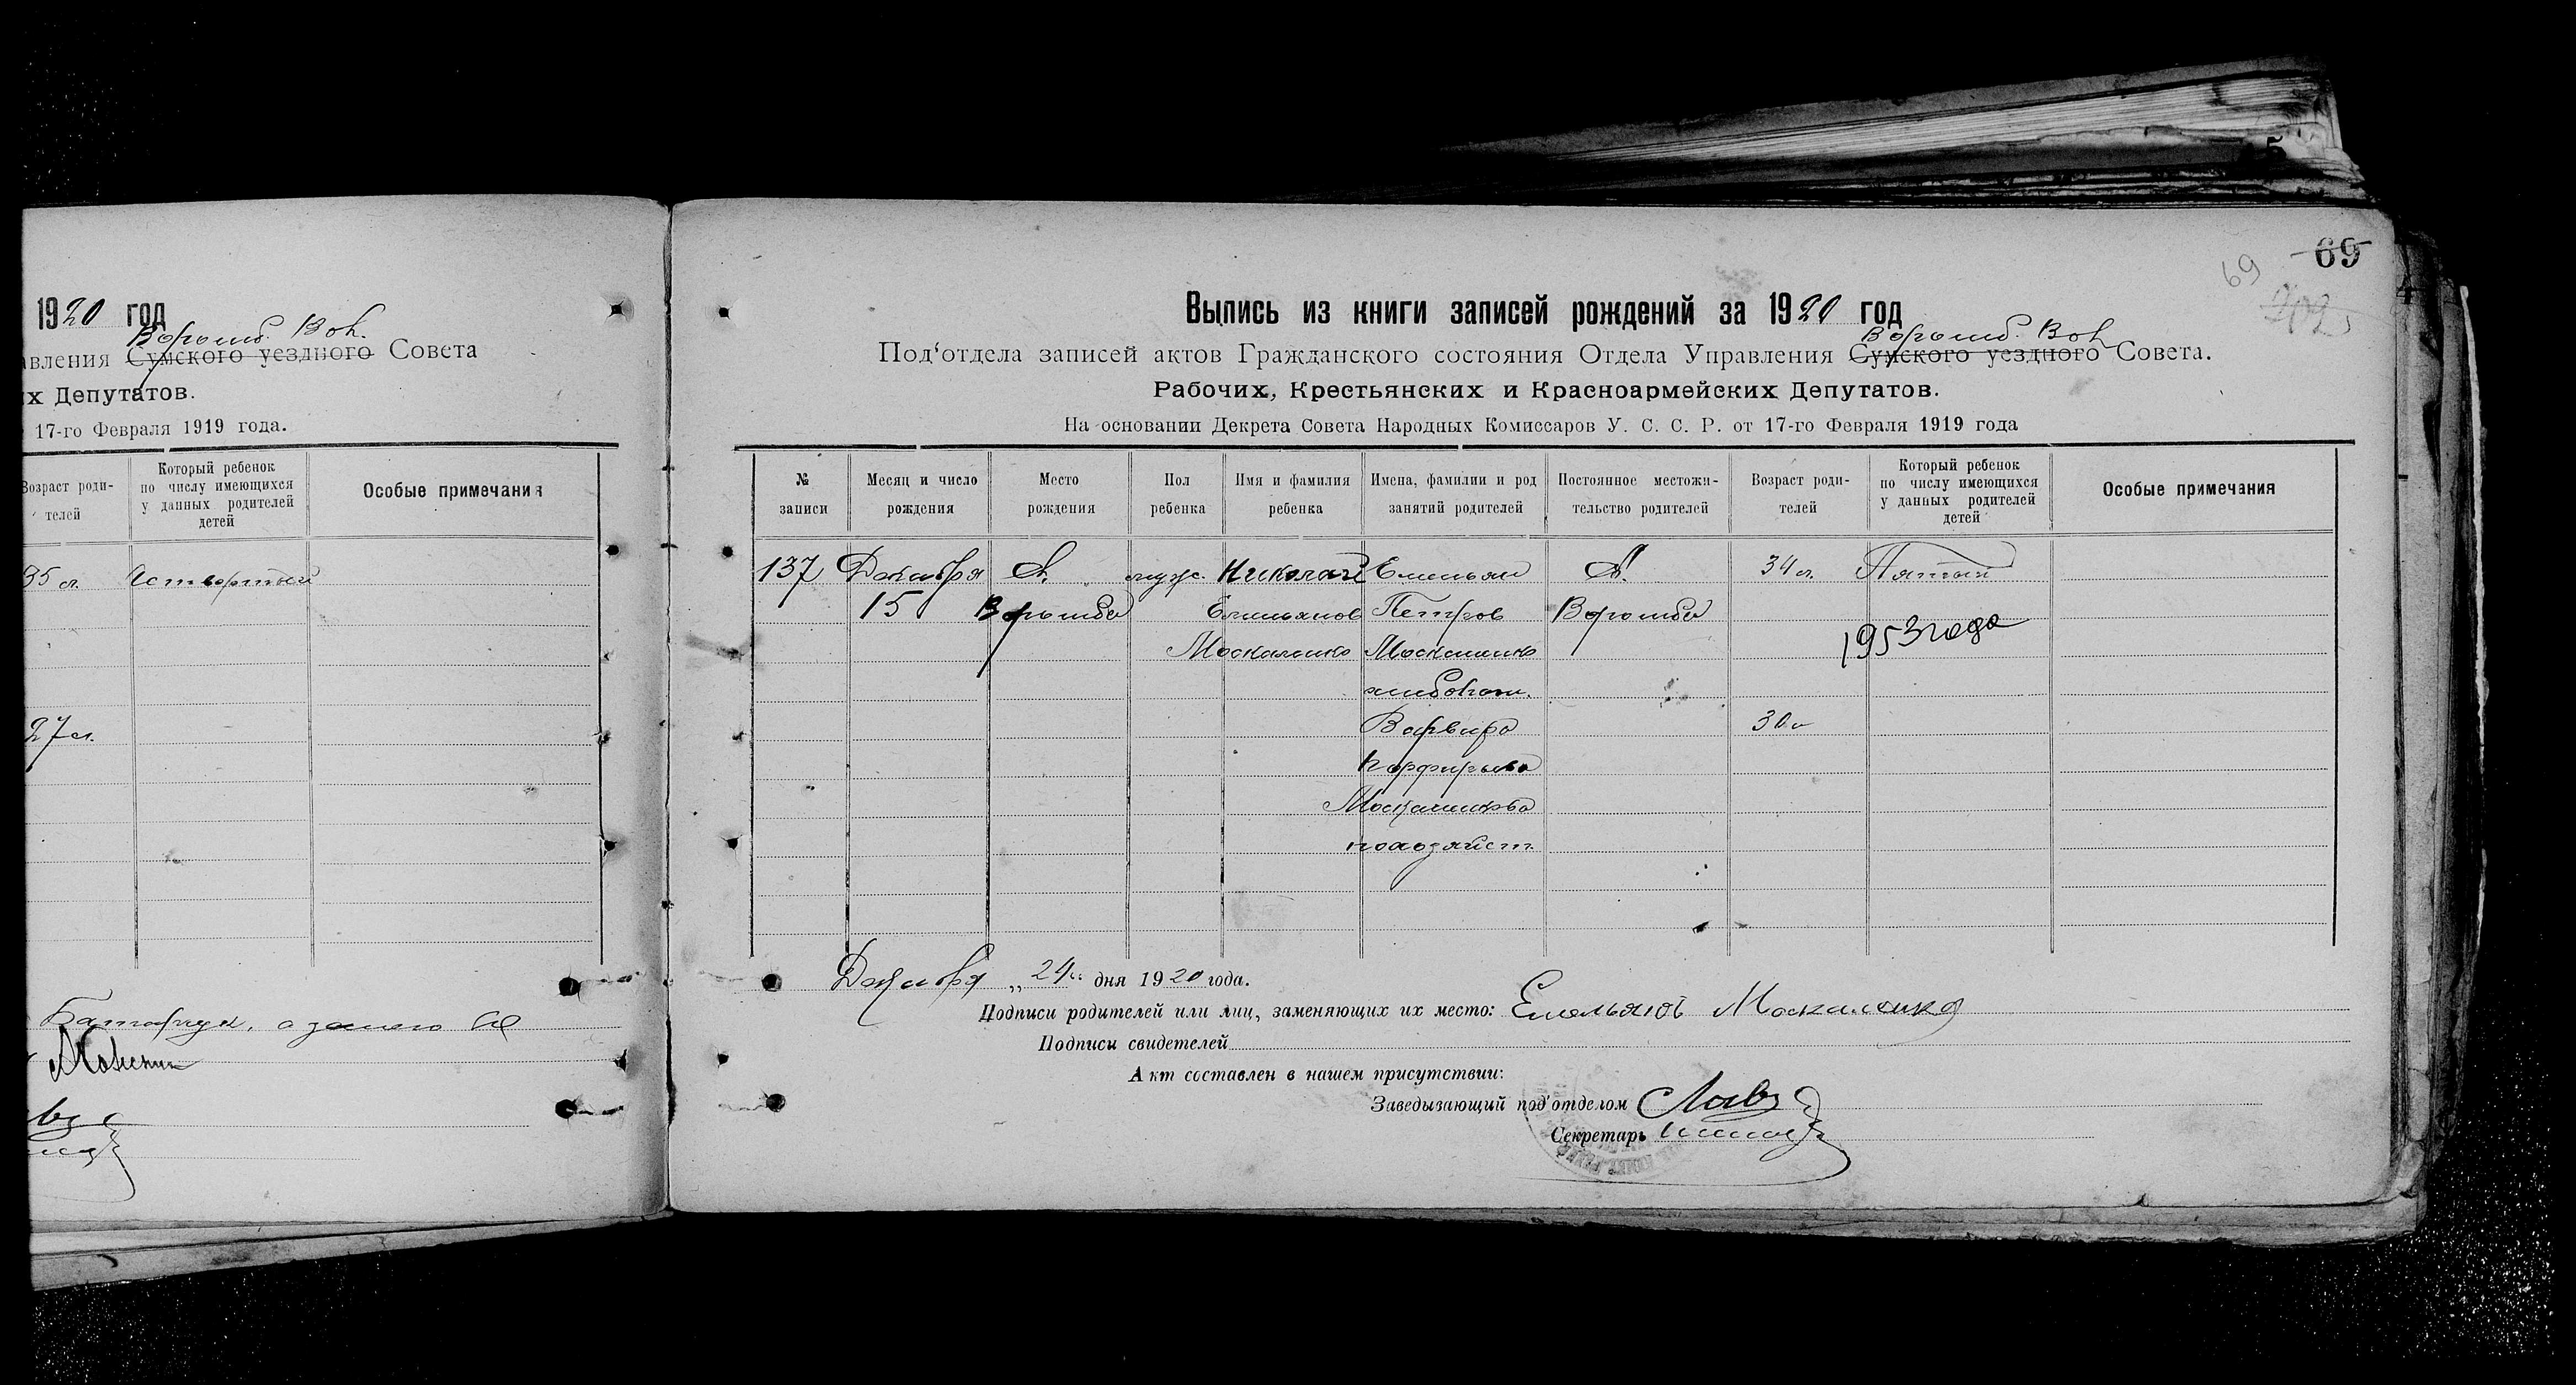 1920 год
Ворожб. Вол.
авления Сумского уездного Совета
их Депутатов.
17-го Февраля 1919 года.
Возраст роди-
телей
Который ребенок
по числу имеющихся
у данных родителей
детей
Особые примечания
35 л. Четвертый
27 л.
69
69
Выпись из книги записей рождений за 1920 год
Ворожб. Вол.
Под‘отдела записей актов Гражданского состояния Отдела Управления Сумского уездного Совета.
Рабочих, Крестьянских и Красноармейских Депутатов.
На основании Декрета Совета Народных Комиссаров У. С. С. Р. от 17-го Февраля 1919 года
№
записи
Месяц и число
рождения
Место
рождения
Пол
ребенка
Имя и фамилия
ребенка
Имена, фамилии и род
занятий родителей
Постоянное местожи-
тельство родителей
Возраст роди-
телей
Который ребенок
по числу имеющихся
у данных родителей
детей
Особые примечания
137 Декабря С. муж. Николай Емельян С. 34 л. Пятый
15 Ворожба Емельянов Петров Ворожба
1953 года
Москаленко Москаленко
хлебопаш.
Варвара 30 л
Порфирьева
Москаленкова
домохозяйст.
Декабря „24“ дня 1920 года.
Подписи родителей или лиц, заменяющих их место: Емельян Москаленко
Подписи свидетелей
Акт составлен в нашем присутствии:
Заведывающий под'отделом
Секретарь